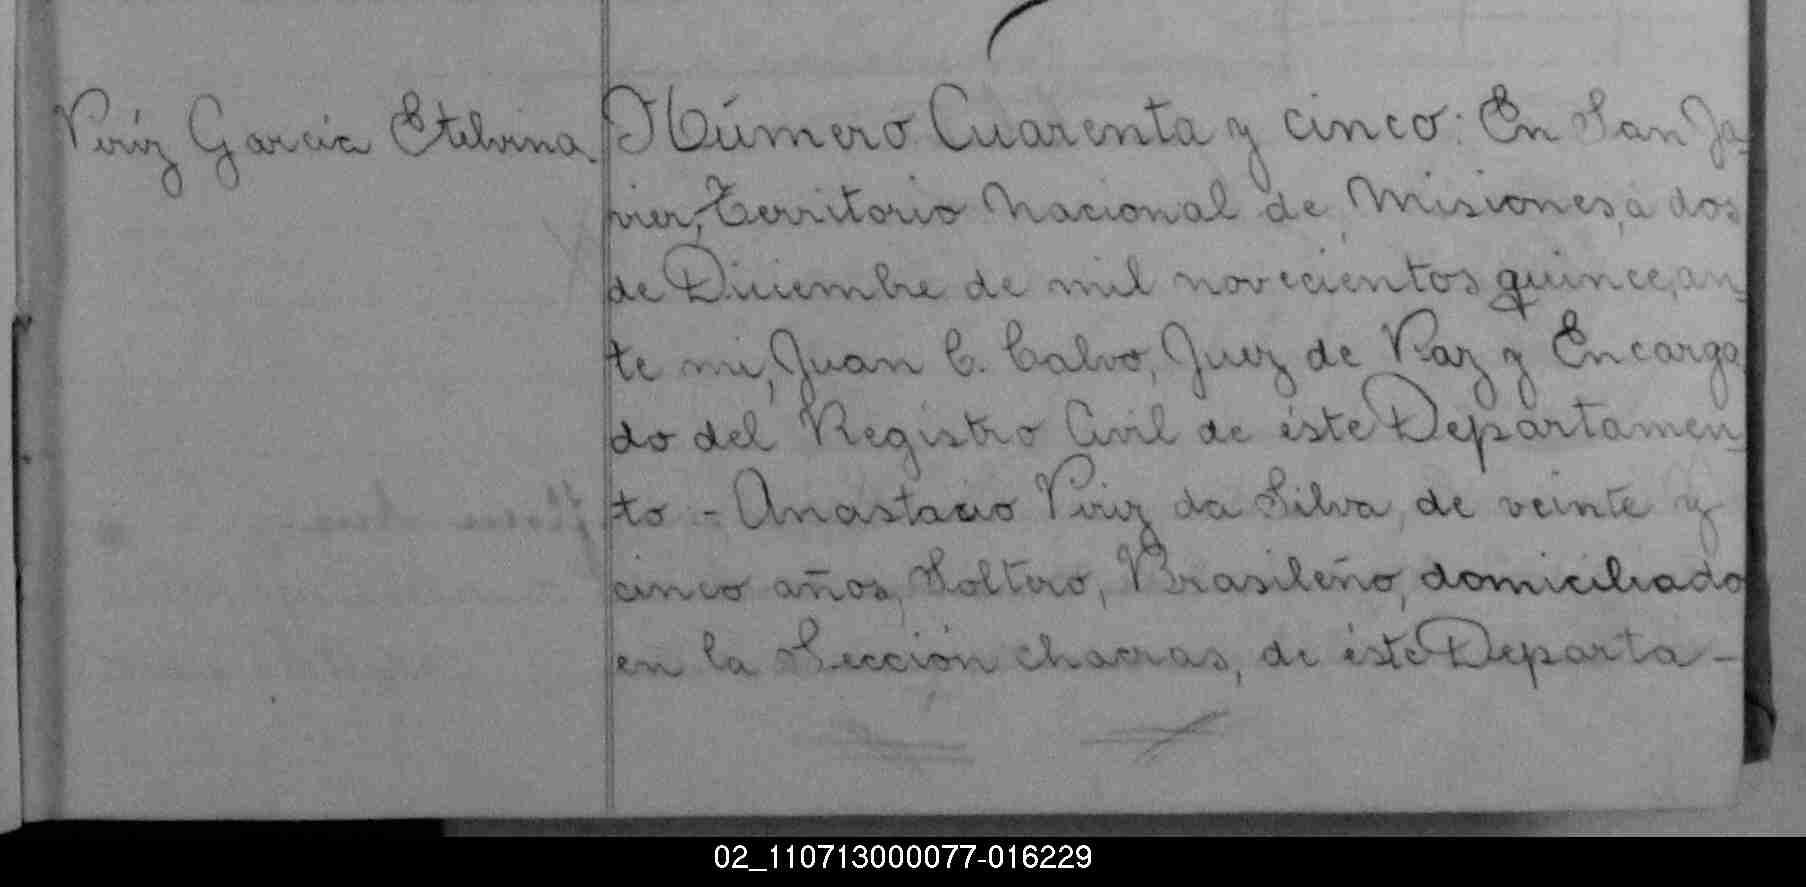 Piriz Garcia Etelvina.
Número Cuarenta y cinco: En San Ja-
vier, Territorio Nacional de Misiones, a dos
de Diciembre de mil novecientos quince, an-
te mi, Juan C. Calvo, Juez de Paz y Encarga
do del Registro Civil de éste Departamen-
to - Anastacio Piriz da Silva, de veinte y
cinco años, Soltero, Brasileño, domiciliado
en la Sección chacras, de éste Departa-
02_110713000077-016229